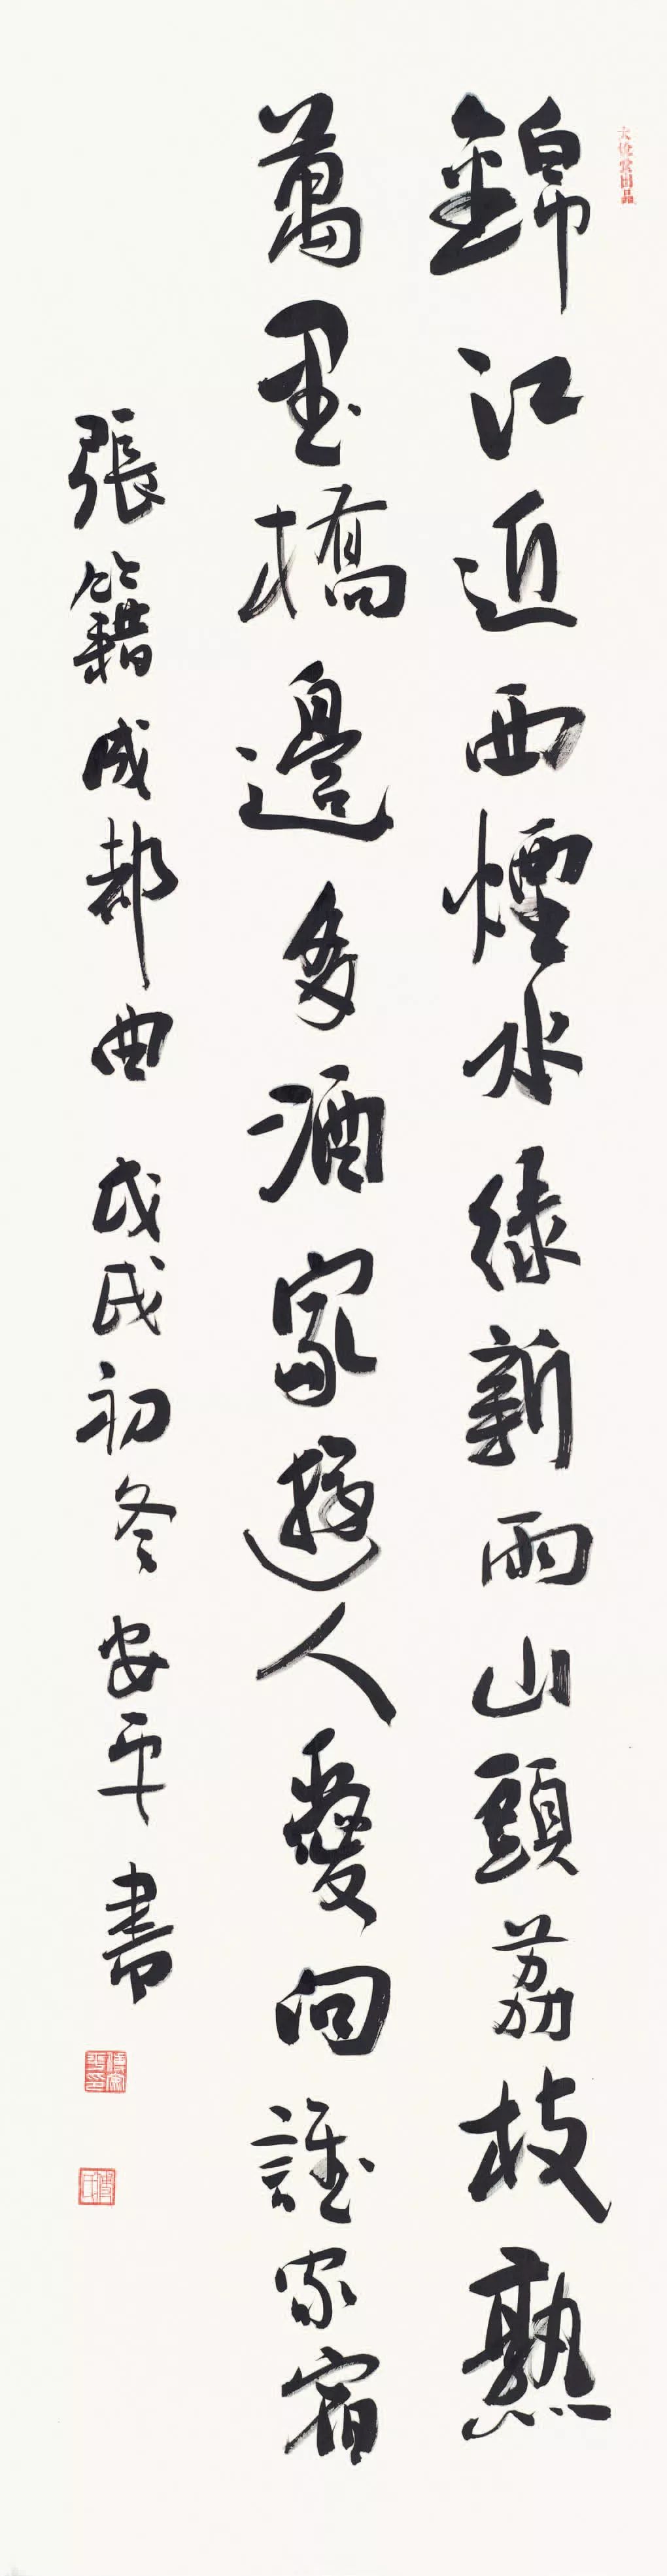 錦江近西煙水綠新雨山頭荔枝熟
萬里橋邊多酒家遊人愛向誰家宿
張籍成都曲 戊戌初冬 安平書